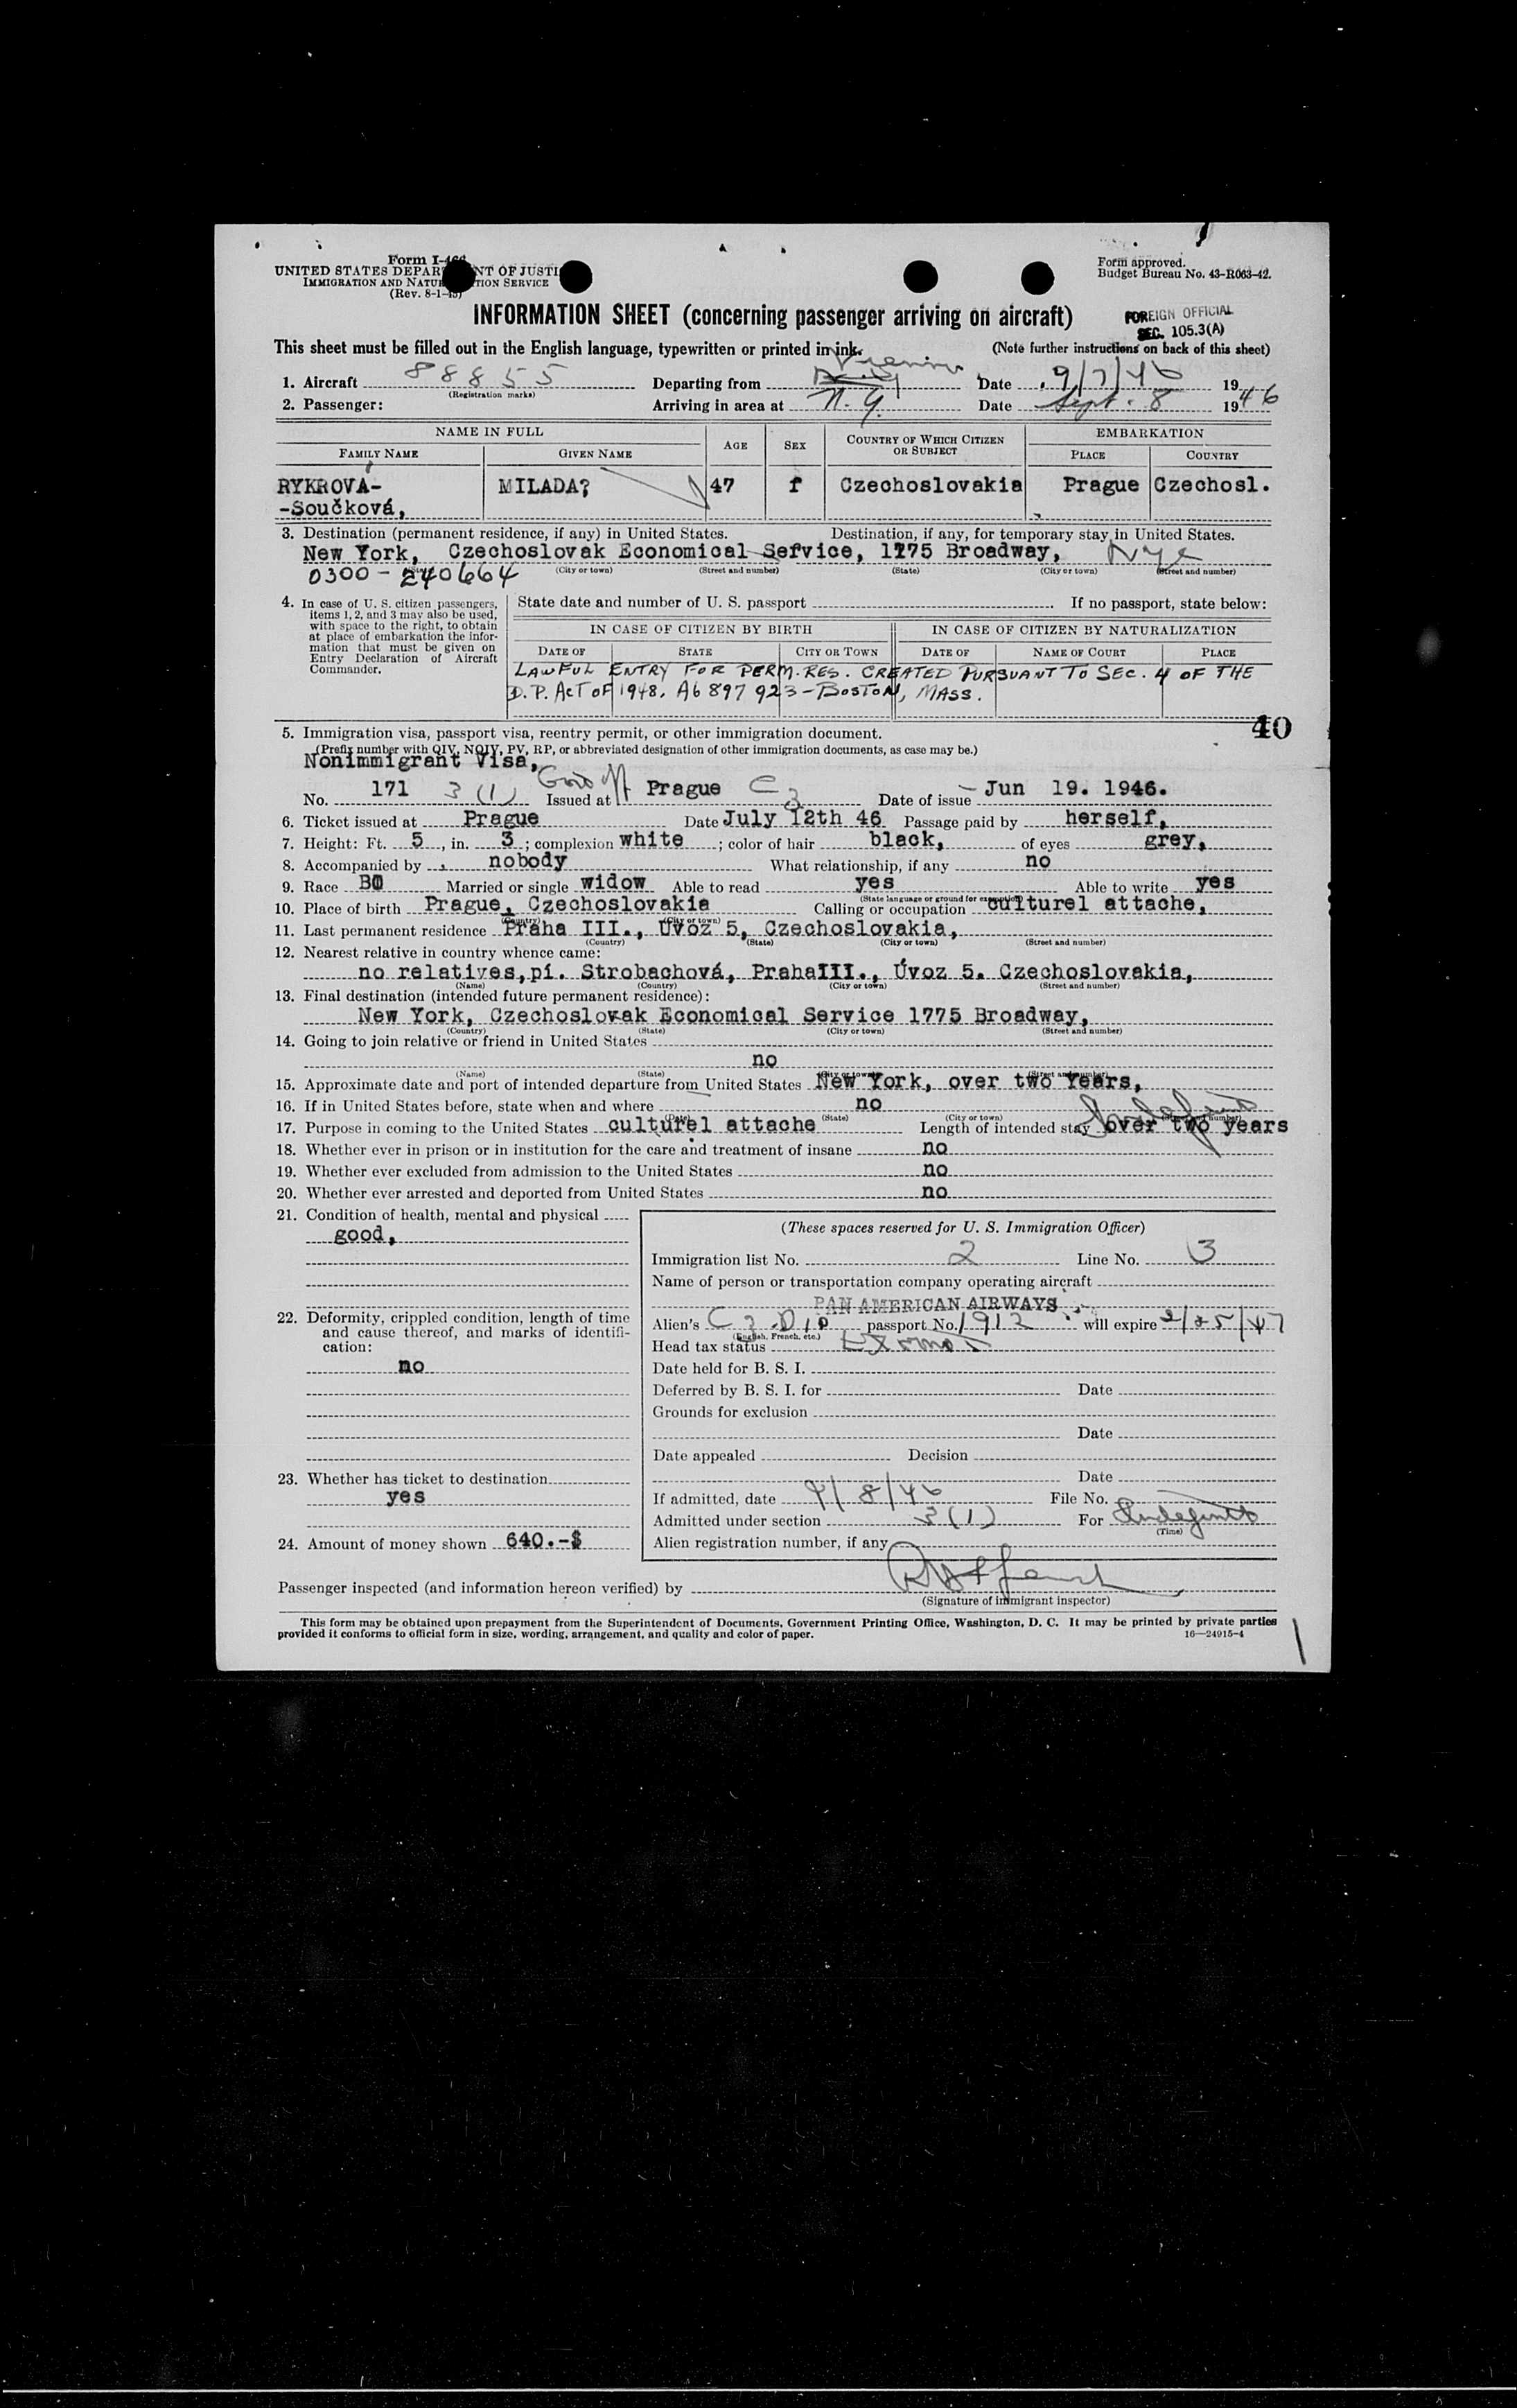 Form I-466
UNITED STATES DEPARTMENT OF JUSTICE
IMMIGRATION AND NATURALIZATION SERVICE
(Rev. 8-1-45)
Form approved.
Budget Bureau No. 43-R063-42.
INFORMATION SHEET (concerning passenger arriving on aircraft)
FOREIGN OFFICIAL
SEC. 105.3(A)
This sheet must be filled out in the English language, typewritten or printed in ink.
(Note further instructions on back of this sheet)
1. Aircraft 88855 Departing from Vienna Date 9/7/46 19
(Registration marks)
2. Passenger: Arriving in area at N.Y. Date Sept. 8 1946
NAME IN FULL AGE SEX COUNTRY OF WHICH CITIZEN OR SUBJECT EMBARKATION
FAMILY NAME GIVEN NAME PLACE COUNTRY
RYKROVA- MILADA? 47 f Czechoslovakia Prague Czechosl.
-Součková,
3. Destination (permanent residence, if any) in United States. Destination, if any, for temporary stay in United States.
New York, Czechoslovak Economical Sefvice, 1775 Broadway, NYC
0300-240664 (City or town) (Street and number) (State) (City or town) (Street and number)
4. In case of U. S. citizen passengers, items 1, 2, and 3 may also be used, with space to the right, to obtain at place of embarkation the information that must be given on Entry Declaration of Aircraft Commander.
State date and number of U. S. passport If no passport, state below:
IN CASE OF CITIZEN BY BIRTH IN CASE OF CITIZEN BY NATURALIZATION
DATE OF STATE CITY OR TOWN DATE OF NAME OF COURT PLACE
LAWFUL ENTRY FOR PERM. RES. CREATED PURSUANT TO SEC. 4 OF THE
D.P. ACT OF 1948. A6 897 923-BOSTON, MASS.
40
5. Immigration visa, passport visa, reentry permit, or other immigration document.
(Prefix number with QIV, NQIV, PV, RP, or abbreviated designation of other immigration documents, as case may be.)
Nonimmigrant Visa,
No. 171 3(1) Issued at Prague Cz Date of issue Jun 19. 1946.
6. Ticket issued at Prague Date July 12th 46 Passage paid by herself,
7. Height: Ft. 5, in. 3; complexion white; color of hair black, of eyes grey,
8. Accompanied by nobody What relationship, if any no
9. Race BO Married or single widow Able to read yes Able to write yes
(State language or ground for exemption)
10. Place of birth Prague, Czechoslovakia Calling or occupation culturel attache,
(Country) (City or town)
11. Last permanent residence Praha III., Úvoz 5, Czechoslovakia,
(Country) (State) (City or town) (Street and number)
12. Nearest relative in country whence came:
no relatives, pí. Strobachová, PrahaIII., Úvoz 5. Czechoslovakia,
(Name) (Country) (City or town) (Street and number)
13. Final destination (intended future permanent residence):
New York, Czechoslovak Economical Service 1775 Broadway,
(Country) (State) (City or town) (Street and number)
14. Going to join relative or friend in United States
no
(Name) (State) (City or town) (Street and number)
15. Approximate date and port of intended departure from United States New York, over two Years,
16. If in United States before, state when and where no
(Date) (State) (City or town) (Street and number)
17. Purpose in coming to the United States culturel attache Length of intended stay over two years
Indefinite
18. Whether ever in prison or in institution for the care and treatment of insane no
19. Whether ever excluded from admission to the United States no
20. Whether ever arrested and deported from United States no
21. Condition of health, mental and physical
good,
(These spaces reserved for U. S. Immigration Officer)
Immigration list No. 2 Line No. 3
Name of person or transportation company operating aircraft
PAN AMERICAN AIRWAYS
22. Deformity, crippled condition, length of time and cause thereof, and marks of identification:
no
Alien's Cz Dip passport No. 1912 will expire 2/25/47
(English, French, etc.)
Head tax status Exempt
Date held for B. S. I.
Deferred by B. S. I. for Date
Grounds for exclusion
Date
Date appealed Decision
Date
23. Whether has ticket to destination
yes
If admitted, date 9/8/46 File No.
Admitted under section 3(1) For Indefinite
(Time)
24. Amount of money shown 640.-$
Alien registration number, if any
Passenger inspected (and information hereon verified) by
(Signature of immigrant inspector)
This form may be obtained upon prepayment from the Superintendent of Documents, Government Printing Office, Washington, D. C. It may be printed by private parties
provided it conforms to official form in size, wording, arrangement, and quality and color of paper.
16—24915-4